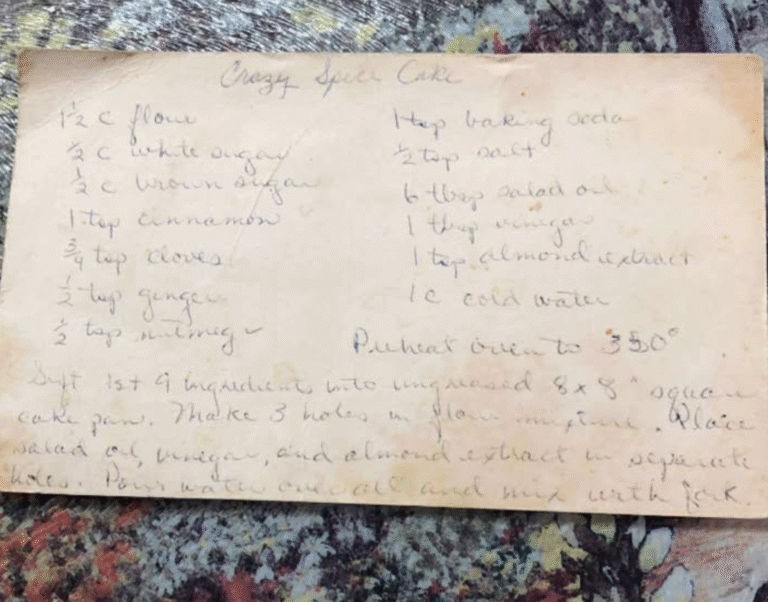 Crazy Spice Cake
1 1/2 c flour
1/2 c white sugar
1/2 c brown sugar
1 tsp cinnamon
3/4 tsp cloves
1/2 tsp ginger
1/2 tsp nutmeg
1 tsp baking soda
1/2 tsp salt
6 tbsp salad oil
1 tbsp vinegar
1 tsp almond extract
1 c cold water
Preheat oven to 350°
Sift 1st 9 ingredients into ungreased 8x8" square
cake pan. Make 3 holes in flour mixture. Place
salad oil, vinegar, and almond extract in separate
holes. Pour water over all and mix with fork.